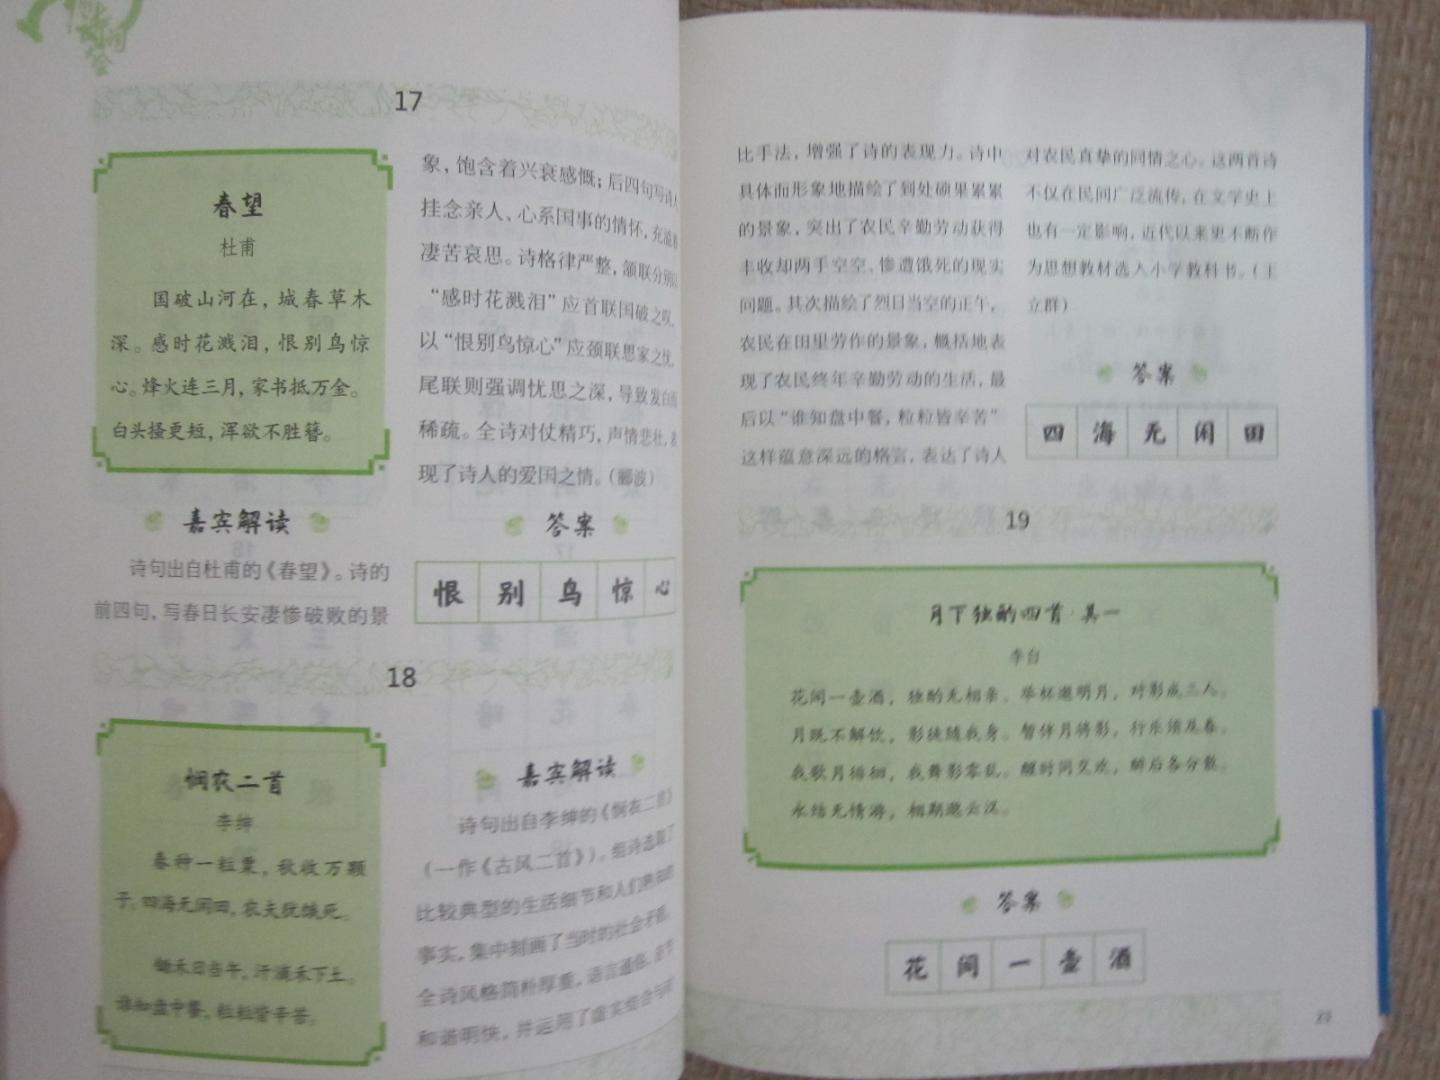 17
春望
杜甫
国破山河在，城春草木
深。感时花溅泪，恨别鸟惊
心。烽火连三月，家书抵万金。
白头搔更短，浑欲不胜簪。
嘉宾解读
诗句出自杜甫的《春望》。诗的
前四句，写春日长安凄惨破败的景
象，饱含着兴衰感慨；后四句写诗人
挂念亲人、心系国事的情怀，充溢着
凄苦哀思。诗格律严整，颔联分别以
“感时花溅泪”应首联国破之叹，
以“恨别鸟惊心”应颈联思家之忧，
尾联则强调忧思之深，导致发白而
稀疏。全诗对仗精巧，声情悲壮，表
现了诗人的爱国之情。（郦波）
答案
恨别鸟惊心
18
悯农二首
李绅
春种一粒粟，秋收万颗
子。四海无闲田，农夫犹饿死。
锄禾日当午，汗滴禾下土。
谁知盘中餐，粒粒皆辛苦。
嘉宾解读
诗句出自李绅的《悯农二首》
（一作《古风二首》）。组诗选取了
比较典型的生活细节和人们熟知的
事实，集中刻画了当时的社会矛盾。
全诗风格简朴厚重，语言通俗，音节
和谐明快，并运用了虚实结合与对
比手法，增强了诗的表现力。诗中
具体而形象地描绘了到处硕果累累
的景象，突出了农民辛勤劳动获得
丰收却两手空空、惨遭饿死的现实
问题。其次描绘了烈日当空的正午，
农民在田里劳作的景象，概括地表
现了农民终年辛勤劳动的生活，最
后以“谁知盘中餐，粒粒皆辛苦”
这样蕴意深远的格言，表达了诗人
对农民真挚的同情之心。这两首诗
不仅在民间广泛流传，在文学史上
也有一定影响，近代以来更不断作
为思想教材选入小学教科书。（王
立群）
答案
四海无闲田
19
月下独酌四首·其一
李白
花间一壶酒，独酌无相亲。举杯邀明月，对影成三人。
月既不解饮，影徒随我身。暂伴月将影，行乐须及春。
我歌月徘徊，我舞影零乱。醒时同交欢，醉后各分散。
永结无情游，相期邈云汉。
答案
花间一壶酒